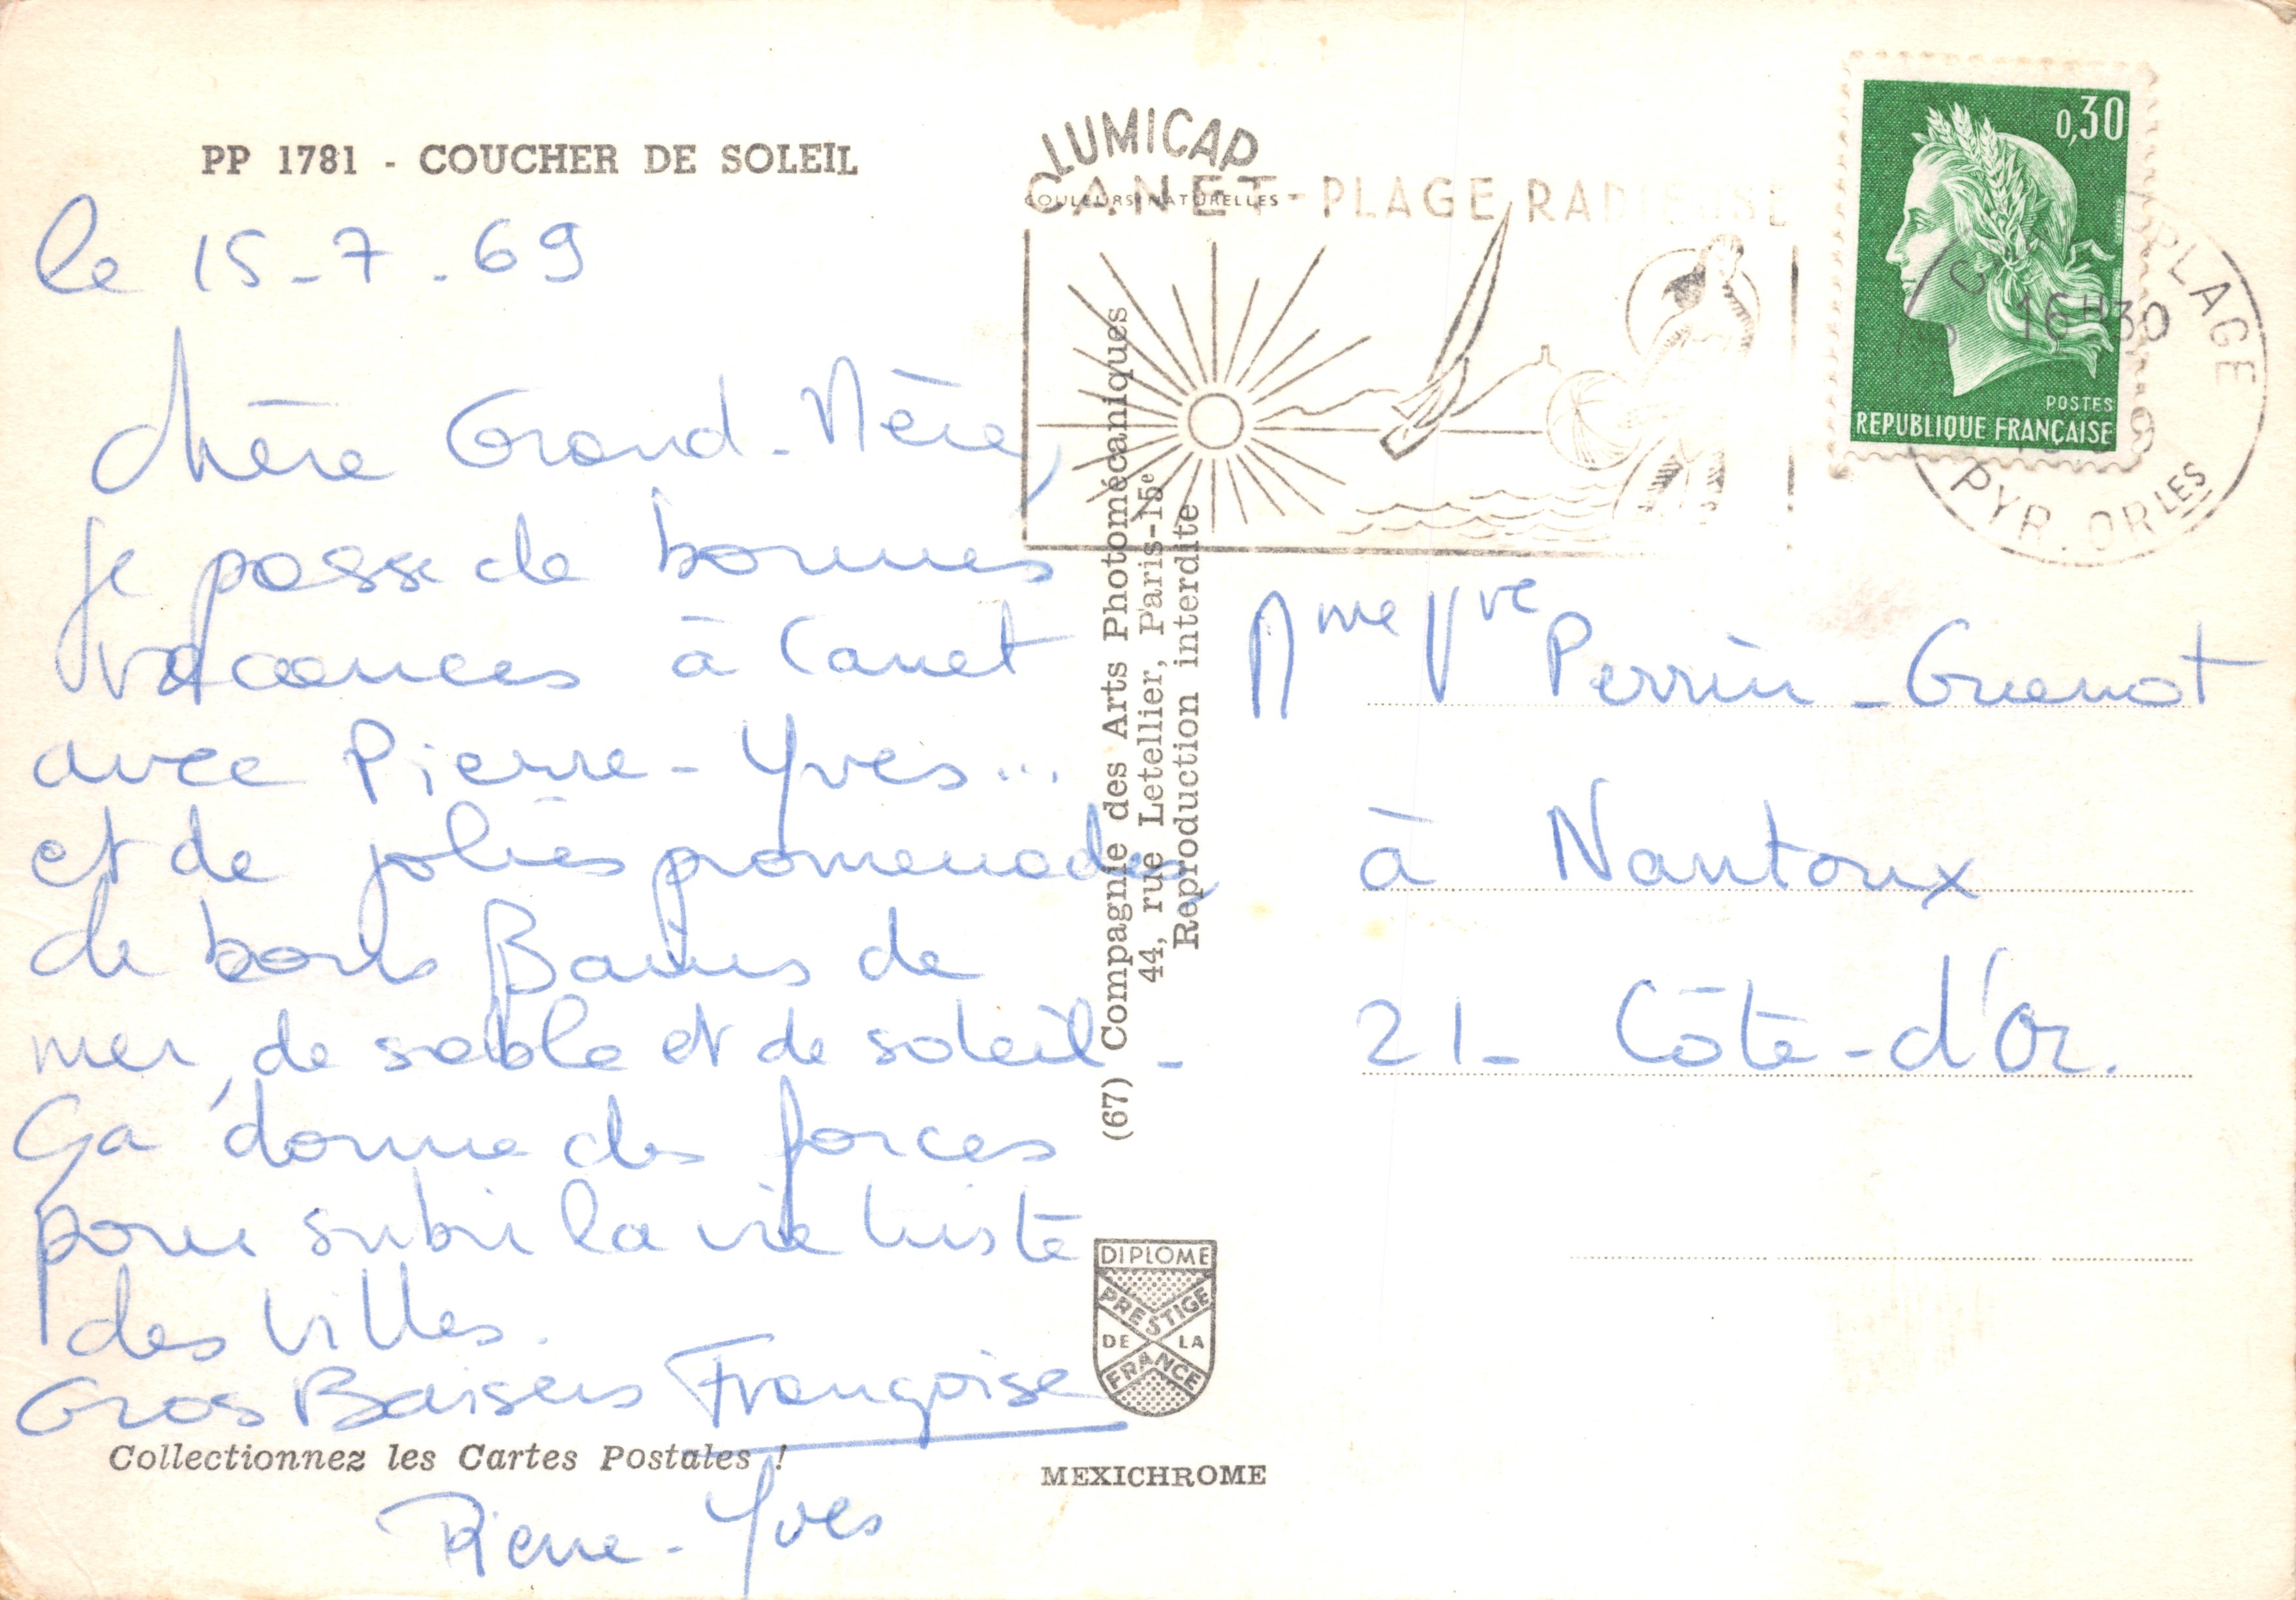 PP 1781 - COUCHER DE SOLEIL
le 15-7-69
Chère Grand-Mère,
Je passe de bonnes
vacances à Canet
avec Pierre-Yves...
et de jolies promenades,
de bons Bains de
mer, de sable et de soleil -
Ça donne des forces
pour subir la vie triste
des villes.
Gros Baisers Françoise
Collectionnez les Cartes Postales !
Pierre-Yves
LUMICAP
COULEURS NATURELLES
CANET-PLAGE RADIEUSE
(67) Compagnie des Arts Photomécaniques
44, rue Letellier, Paris-15e
Reproduction interdite
DIPLOME
PRESTIGE
DE LA
FRANCE
MEXICHROME
0,30
POSTES
REPUBLIQUE FRANÇAISE
PLAGE
16H30
PYR. ORLES
Mme Vve Perrin-Guenot
à Nantoux
21- Côte-d'Or.